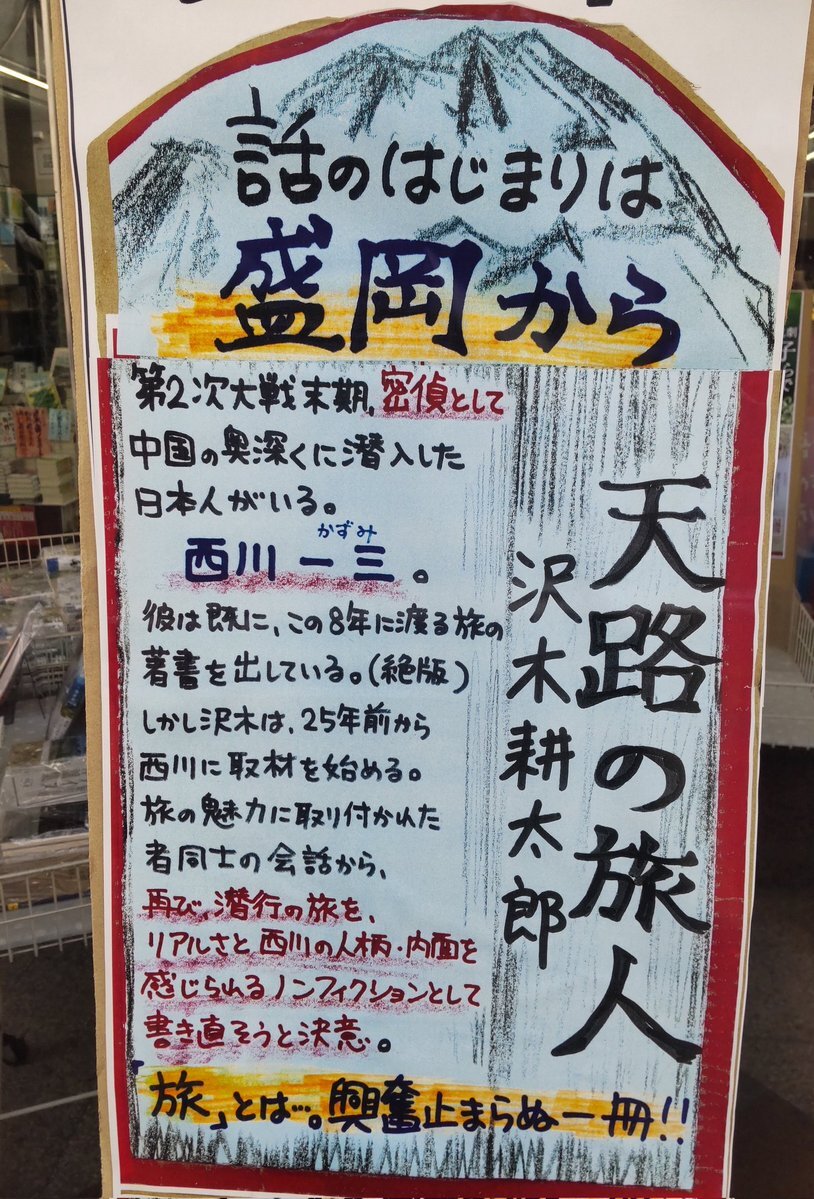 話のはじまりは
盛岡から
天路の旅人
沢木耕太郎
第2次大戦末期、密偵として
中国の奥深くに潜入した
日本人がいる。
かずみ
西川一三。
彼は既に、この8年に渡る旅の
著書を出している。(絶版)
しかし沢木は、25年前から
西川に取材を始める。
旅の魅力に取り付かれた
者同士の会話から、
再び潜行の旅を、
リアルさと西川の人柄・内面を
感じられるノンフィクションとして
書き直そうと決意。
「旅」とは…。興奮止まらぬ一冊!!